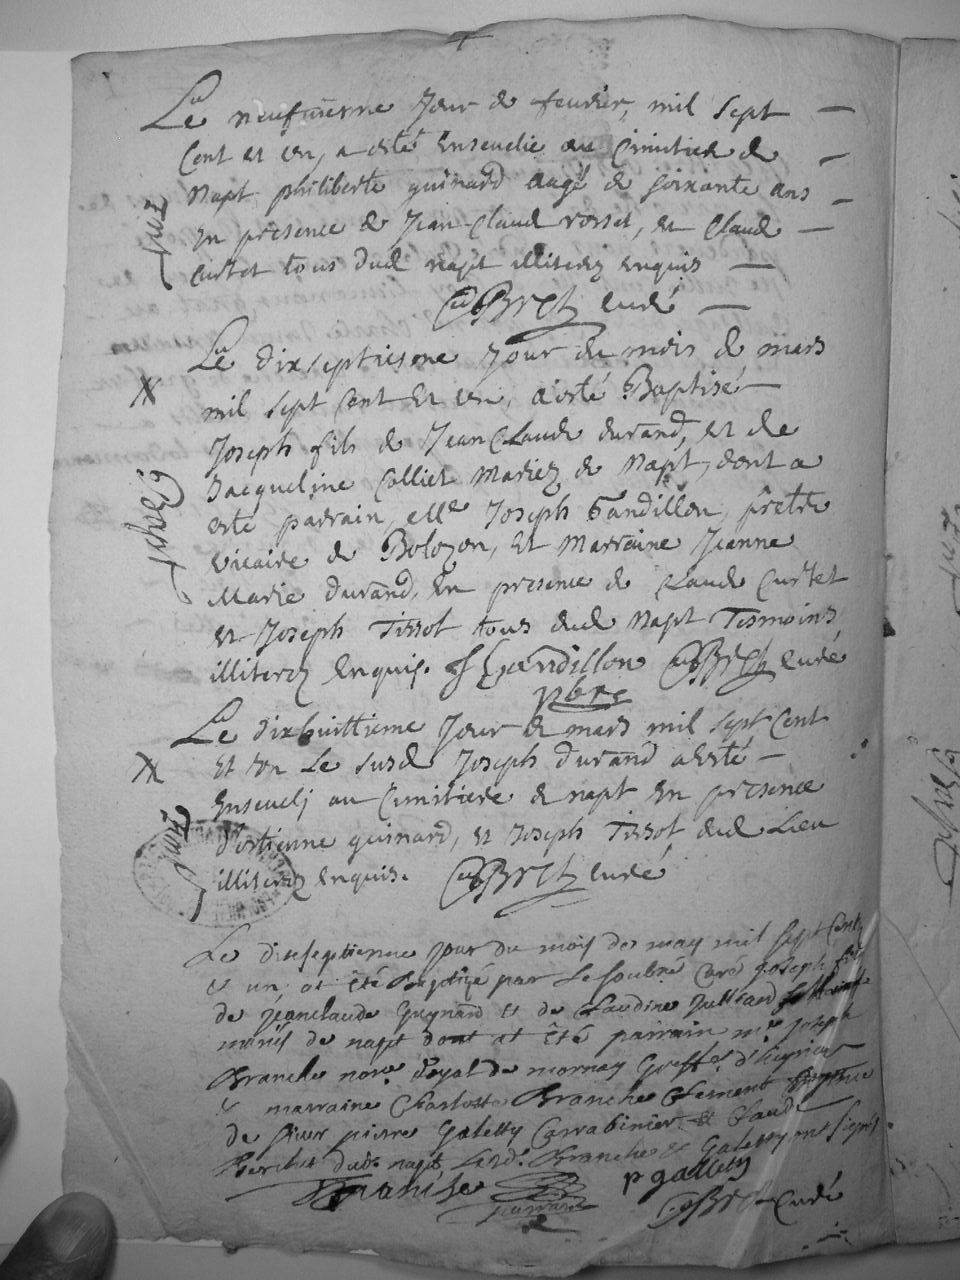 Le neufuiesme Jour de feurier, mil sept
Cent et un, a esté Enseuelie au Cimitiere de
Napt philiberte guinard aagé de soixante ans
En présence de Jean Claude rosset, et Claude
Curtet tous dud napt illiterez enquis
Curé
Le dixseptiesme Jour du mois de mars
mil sept Cent Et un, a esté Baptisé
Joseph fils de Jean Claude durand, et de
Jacqueline Colliet Mariez de Napt, dont a
esté parrain, Joseph Gandillon, prêtre
vicaire de Bolozon, Et Marraine Jeanne
Marie durand, En presence de Claude Curtet
et Joseph Tissot tous dud Napt Tesmoins
illiterez Enquis. Gandillon Curé
pbre
Le dixhuittieme Jour de mars mil sept Cent
et un Le susd Joseph durand a esté
Enseuelj au Cimitiere de napt En présence
d'estienne guinard, et Joseph Tissot dud Lieu
illiterez Enquis. Curé
Le dixseptieme jour du mois de may mil sept Cent
& un, at été Baptizé par Le soubné Curé joseph fils
de jeanclaude Guynard et de Claudine
mariés de napt dont at été parrain mre joseph
Branche royal de mornay
& marraine Charlotte Branche
de sieur pierre Galetty Carrabinier & Claude
dud. napt Lesd. Branche & Galetty ont signés
Branche p galletty
Curé